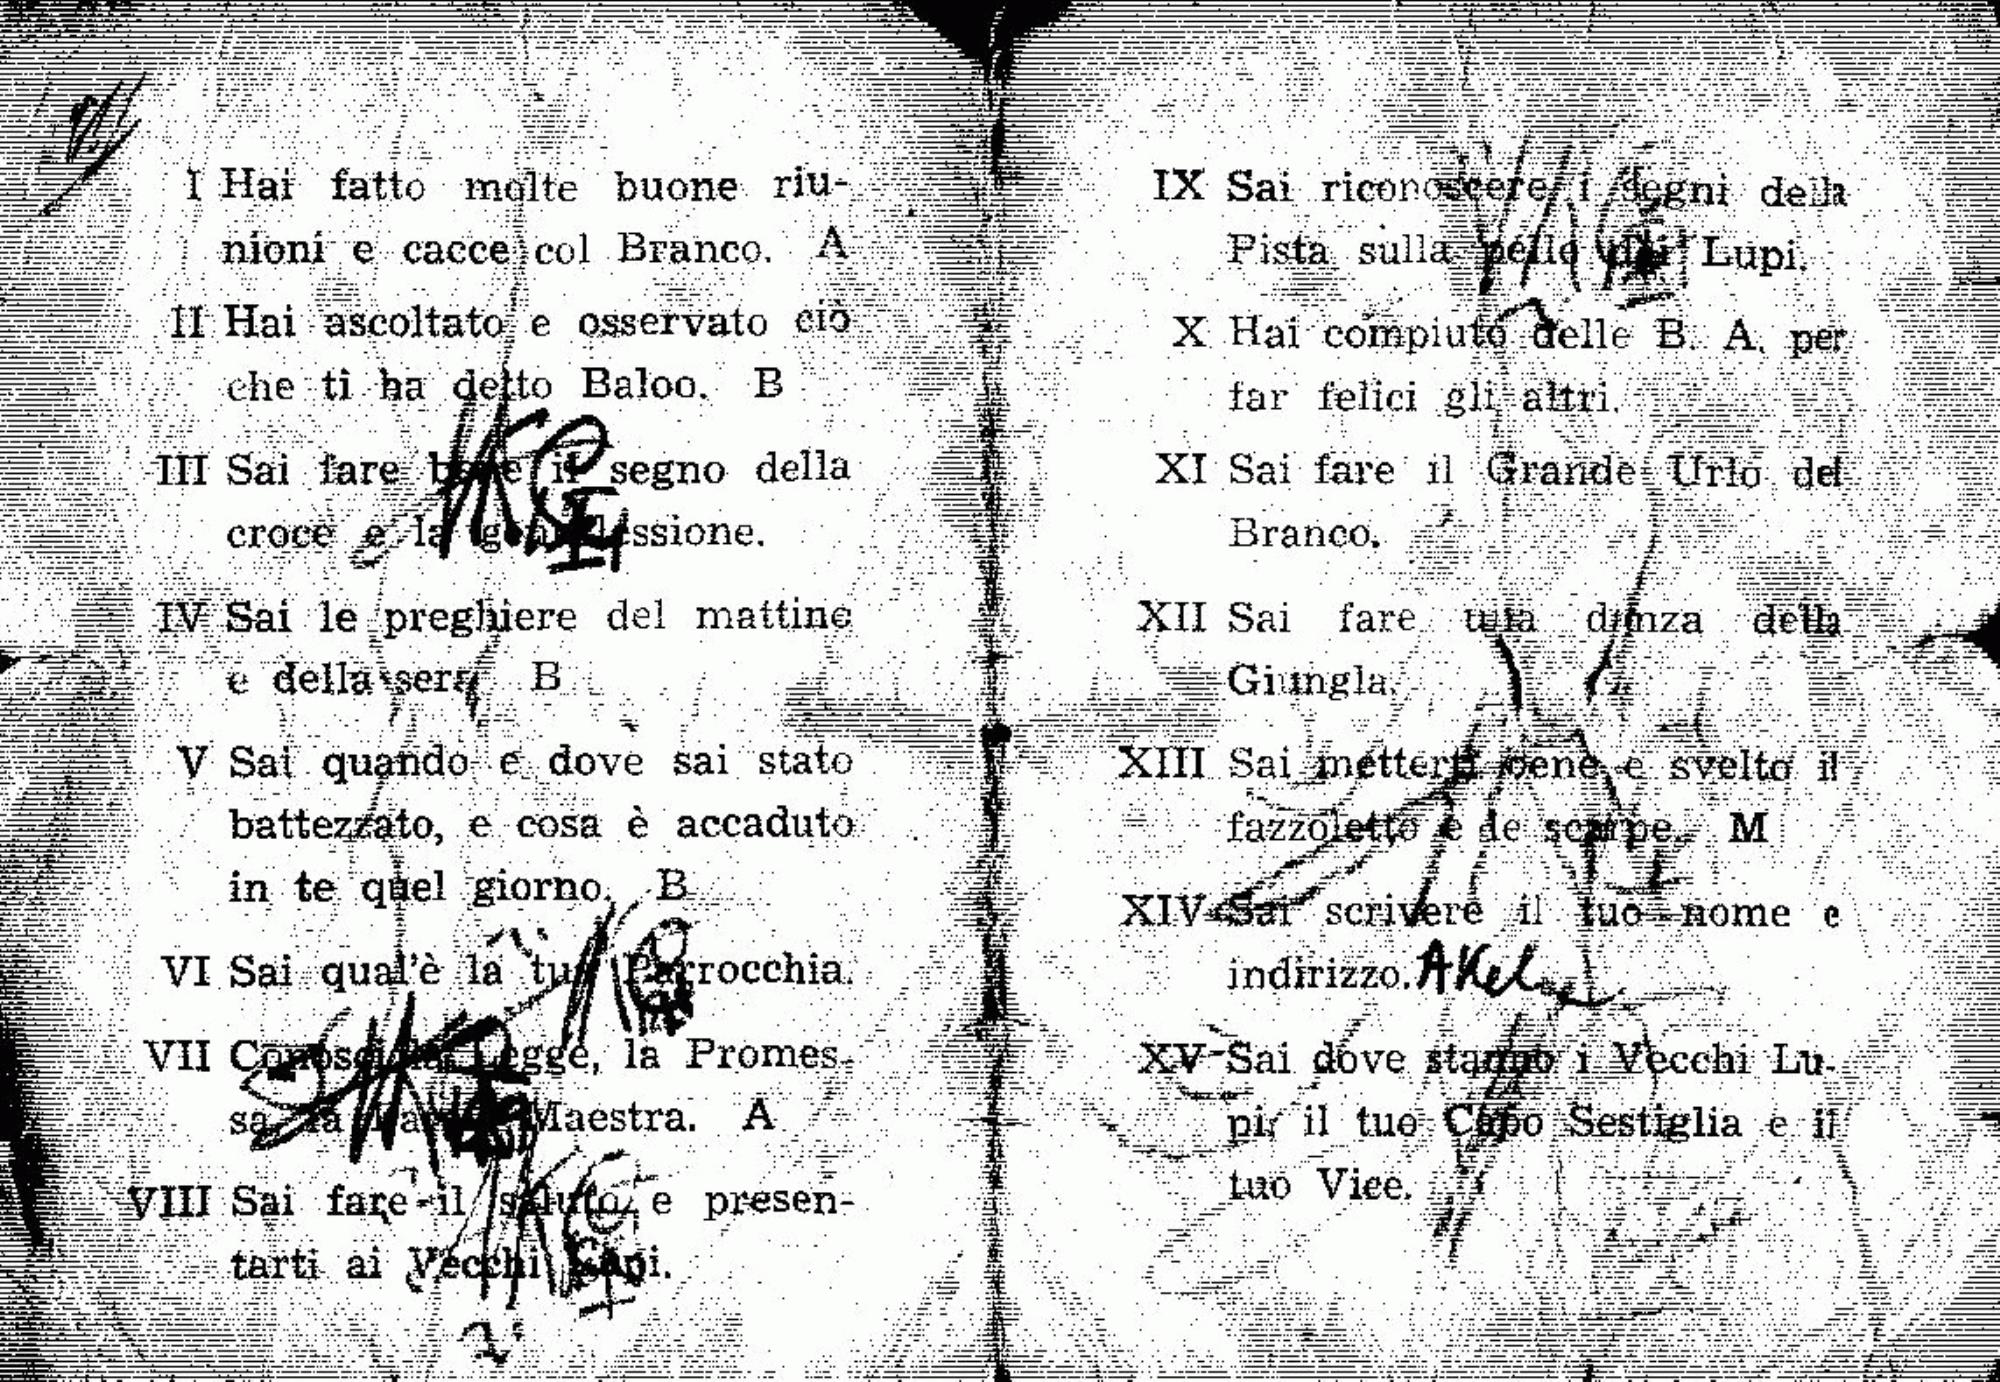 I Hai fatto molte buone riu-
nioni e cacce col Branco. A
II Hai ascoltato e osservato ciò
che ti ha detto Baloo. B
III Sai fare bene il segno della
croce e la genuflessione.
IV Sai le preghiere del mattino
e della sera B
V Sai quando e dove sai stato
battezzato, e cosa è accaduto
in te quel giorno. B
VI Sai qual'è la tua Parrocchia.
VII Conosci la Legge, la Promes-
sa, la Maestra. A
VIII Sai fare il saluto e presen-
tarti ai Vecchi Lupi.
IX Sai riconoscere i segni della
Pista sulla pelle dei Lupi.
X Hai compiuto delle B. A. per
far felici gli altri.
XI Sai fare il Grande Urlo del
Branco.
XII Sai fare una danza della
Giungla.
XIII Sai metterti bene e svelto il
fazzoletto e le scarpe. M
XIV Sai scrivere il tuo nome e
indirizzo. Akela
XV Sai dove stanno i Vecchi Lu-
pi, il tuo Capo Sestiglia e il
tuo Vice.